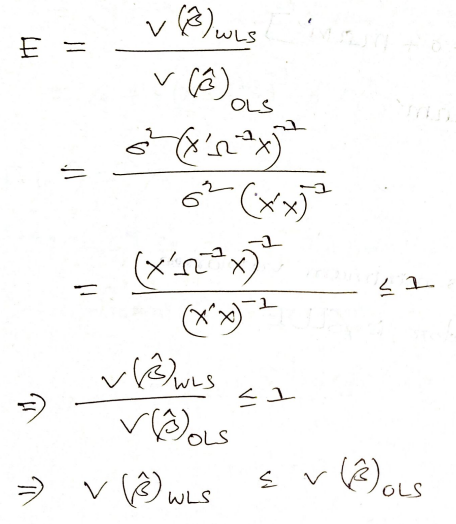 E = V(β̂)WLS / V(β̂)OLS
= σ²(X'Ω⁻¹X)⁻¹ / σ²(X'X)⁻¹
= (X'Ω⁻¹X)⁻¹ / (X'X)⁻¹ ≤ 1
⇒ V(β̂)WLS / V(β̂)OLS ≤ 1
⇒ V(β̂)WLS ≤ V(β̂)OLS